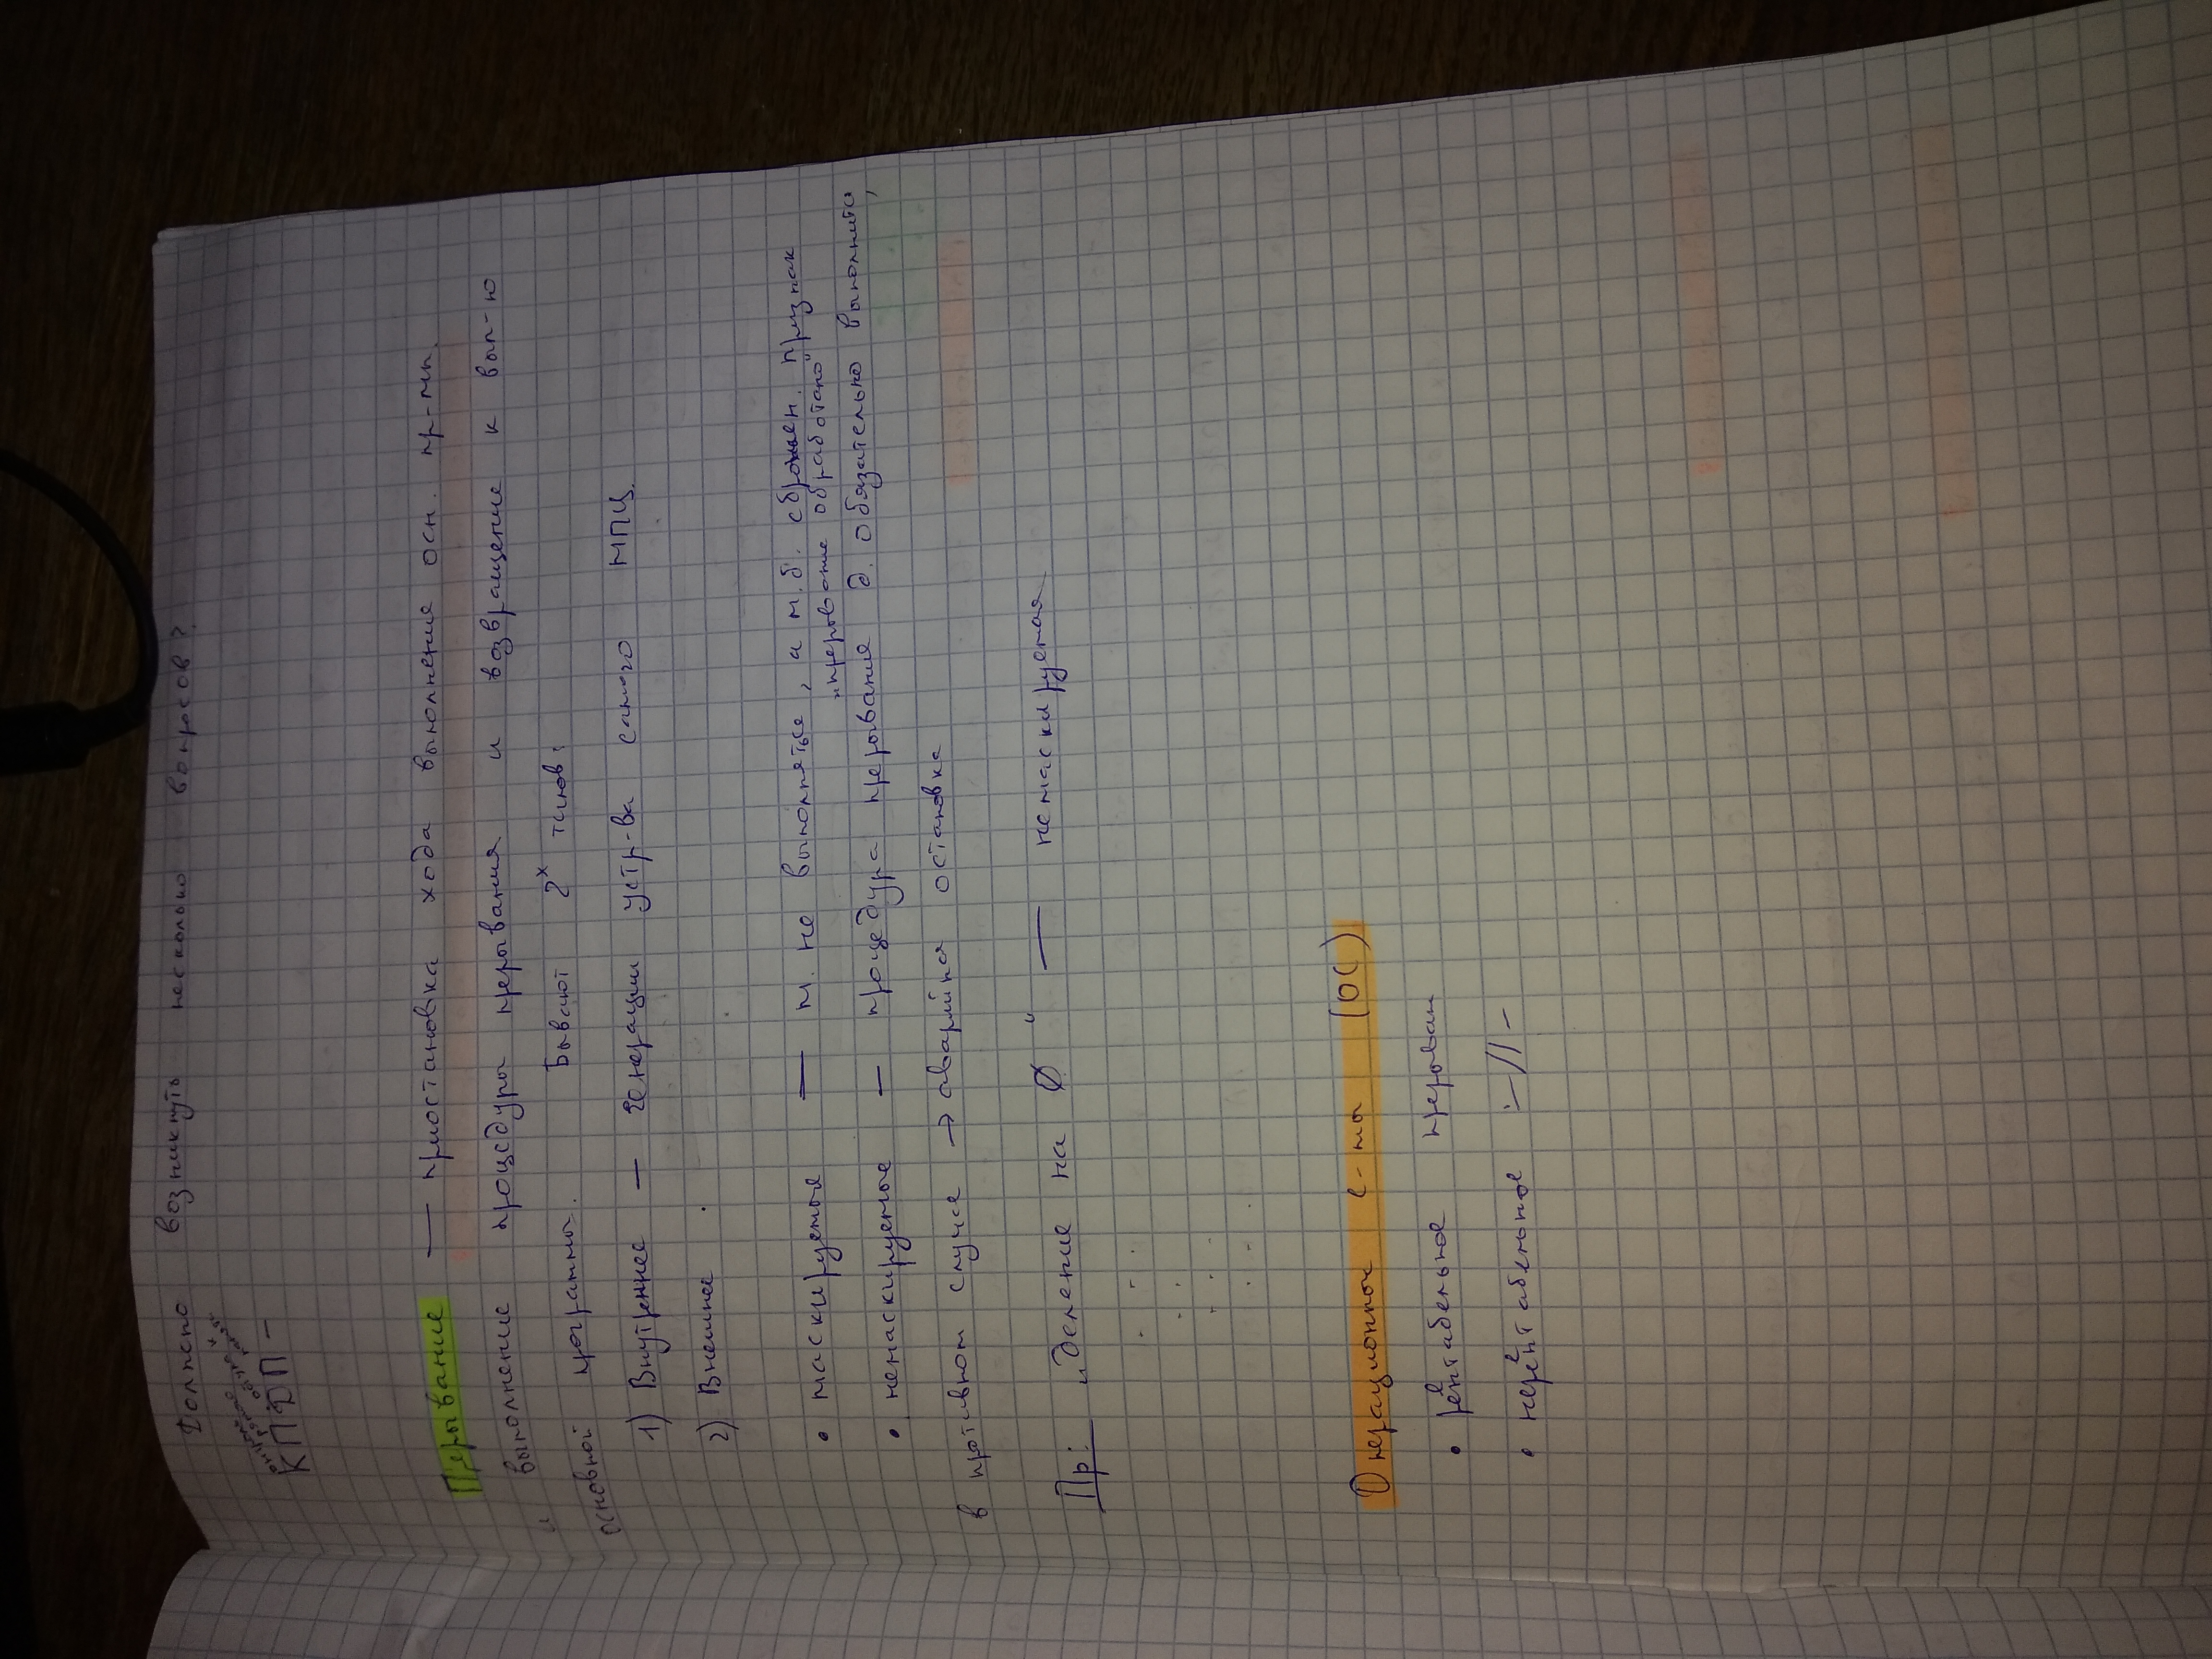 Должно возникнуть несколько вопросов?
КПДП –
Прерывание — приостановка хода выполнения осн. пр-мы.
и выполнение процедуры прерывания и возвращение к вып-ю
основной программы. Бывают 2х типов:
1) Внутреннее — генерации устр-ва самого МПЦ.
2) Внешнее.
• маскируемые — м. не выполняться, а м.б. сброшен. признак
"прерывание обработано"
• немаскируемые — процедура прерывания д. обязательно выполнится,
в противном случае → аварийная остановка
Пр: "деление на 0" — немаскируемая
Операционное с-мы (ОС)
• рентабельное прерыван
• нерентабельное –//–